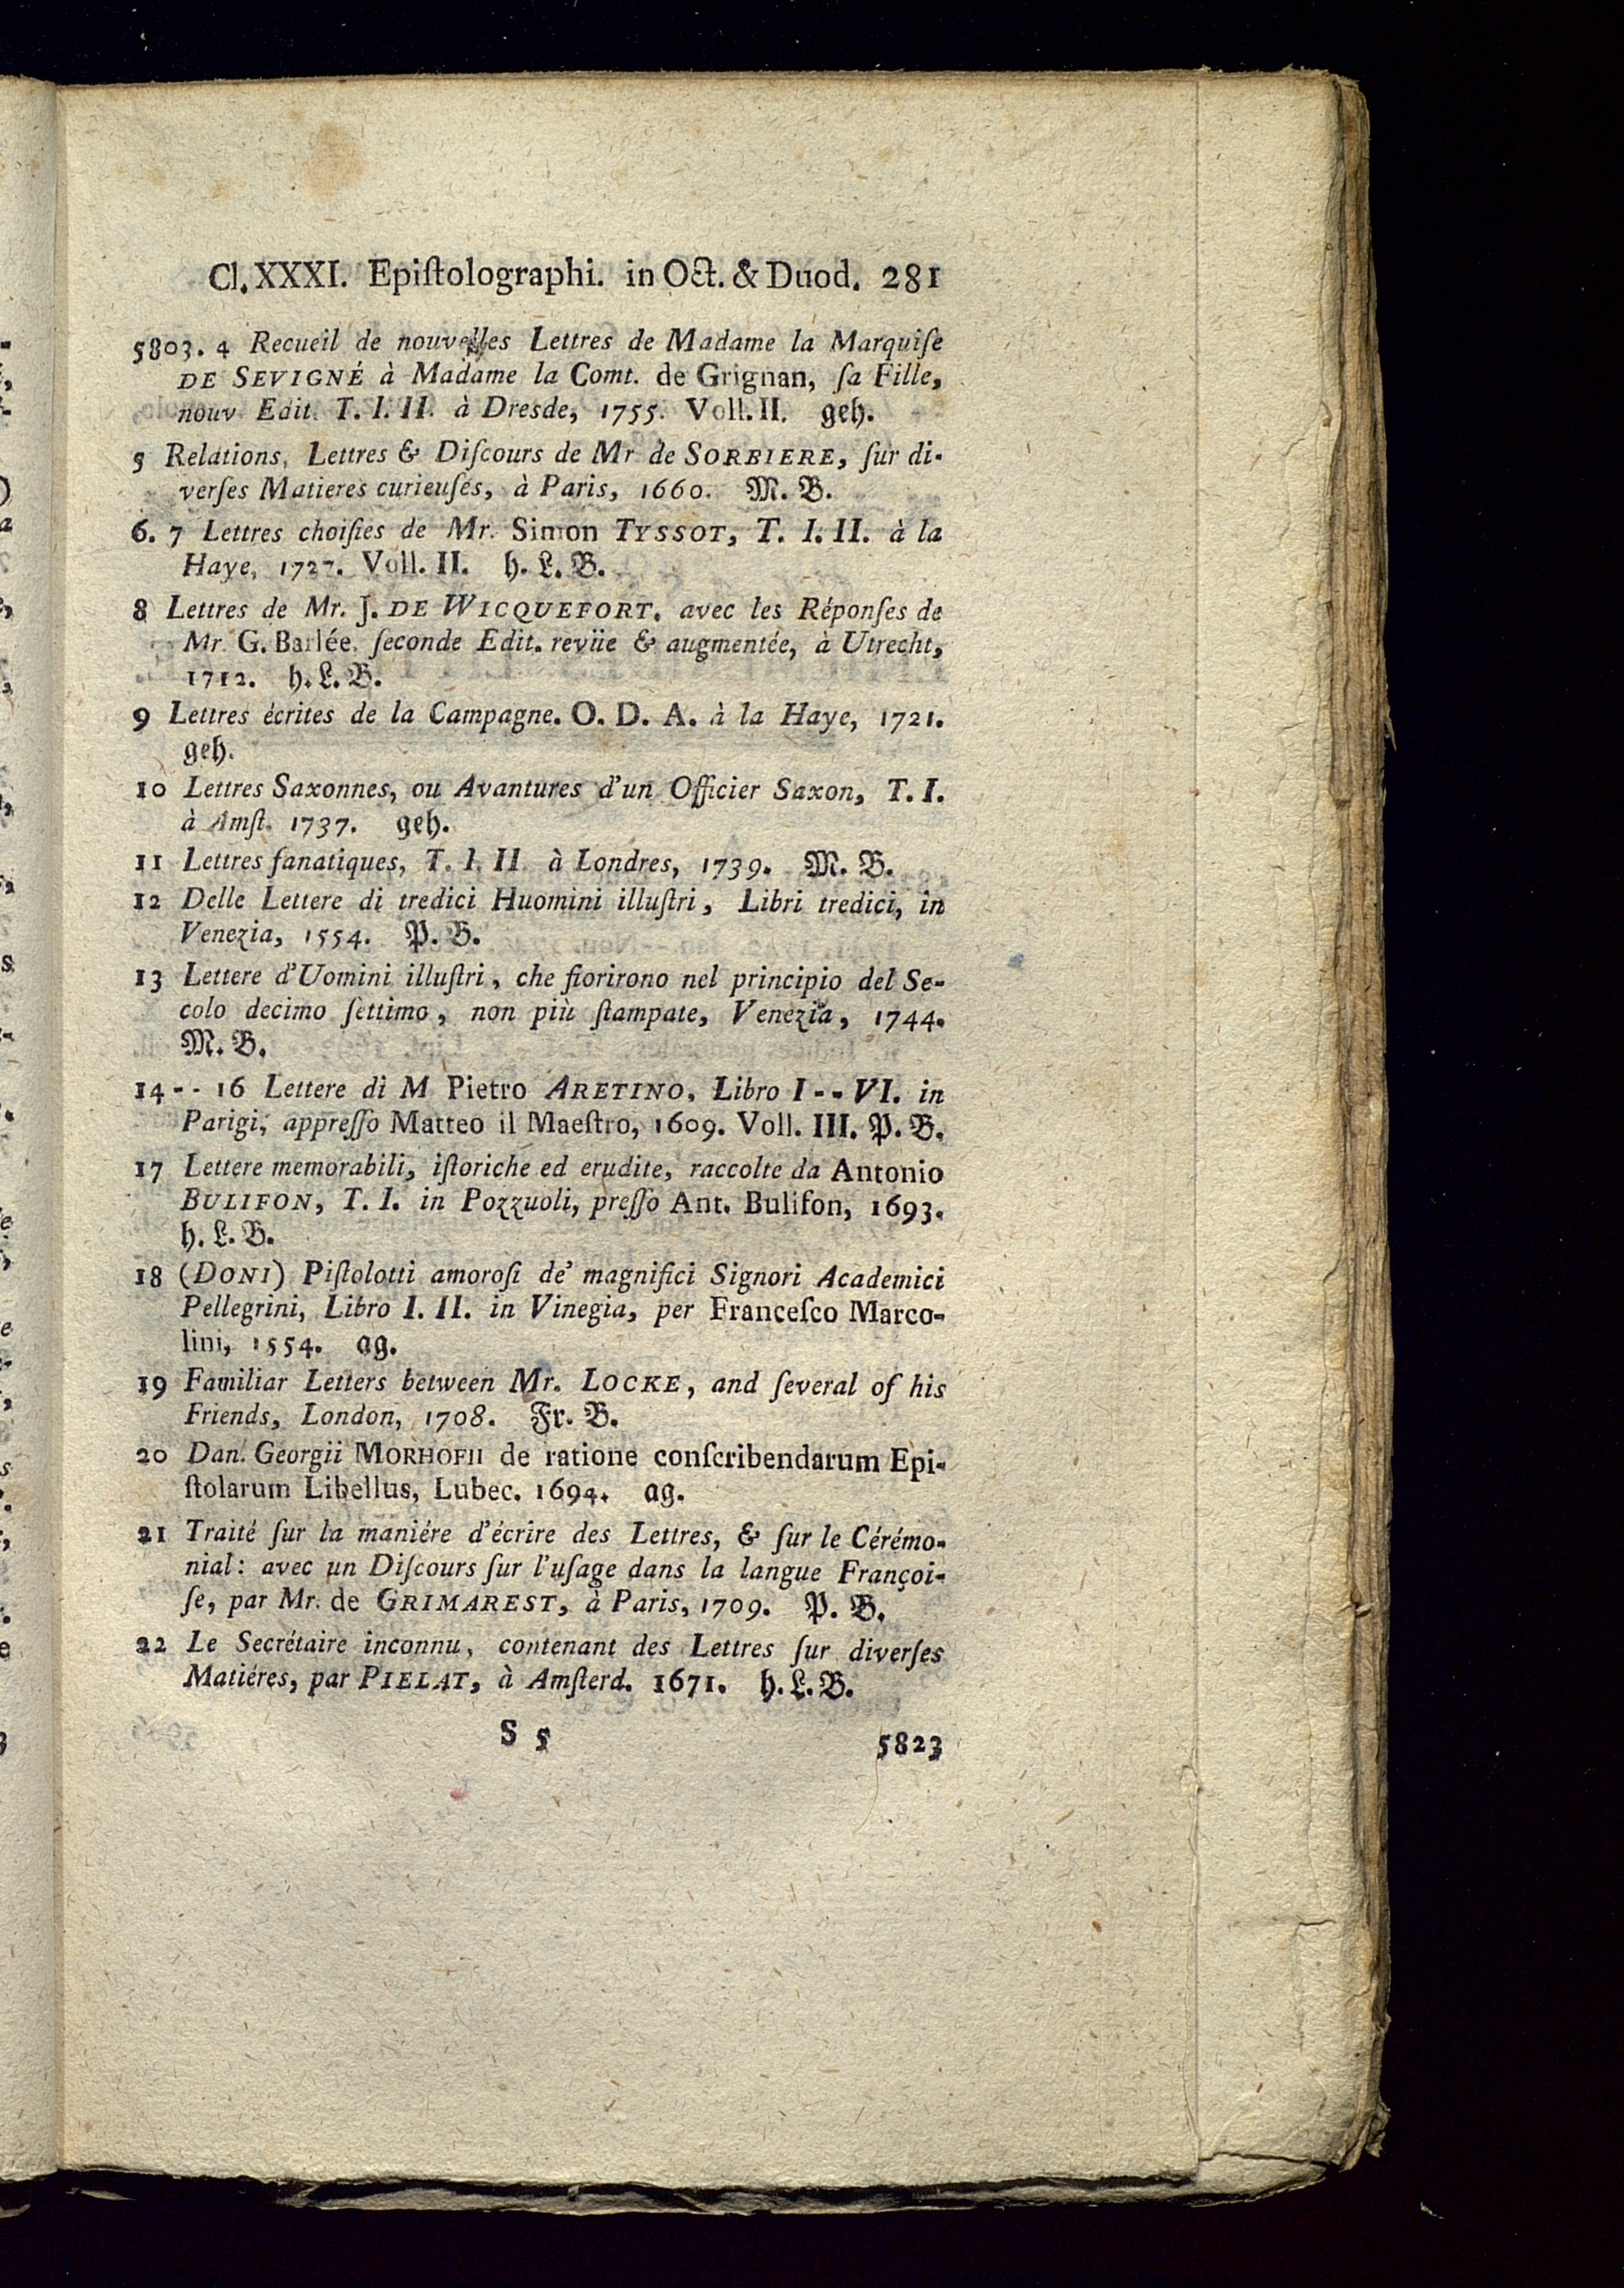 Cl. XXXI. Epiſtolographi. in Oct. & Duod. 281
5803. 4 Recueil de nouvelles Lettres de Madame la Marquiſe
DE SEVIGNÉ à Madame la Comt. de Grignan, ſa Fille,
nouv Edit. T. I. II. à Dresde, 1755. Voll. II. geh.
5 Relations, Lettres & Diſcours de Mr de SORBIERE, ſur di-
verſes Matieres curieuſes, à Paris, 1660. M. B.
6. 7 Lettres choiſies de Mr. Simon TYSSOT, T. I. II. à la
Haye, 1727. Voll. II. h. L. B.
8 Lettres de Mr. J. DE WICQUEFORT. avec les Réponſes de
Mr. G. Barlée. ſeconde Edit. revüe & augmentée, à Utrecht,
1712. h. L. B.
9 Lettres écrites de la Campagne. O. D. A. à la Haye, 1721.
geh.
10 Lettres Saxonnes, ou Avantures d'un Officier Saxon, T. I.
à Amſt. 1737. geh.
11 Lettres fanatiques, T. I. II. à Londres, 1739. M. B.
12 Delle Lettere di tredici Huomini illuſtri, Libri tredici, in
Venezia, 1554. P. B.
13 Lettere d'Uomini illuſtri, che fiorirono nel principio del Se-
colo decimo ſettimo, non più ſtampate, Venezia, 1744.
M. B.
14 - - 16 Lettere di M Pietro ARETINO, Libro I - - VI. in
Parigi, appreſſo Matteo il Maeſtro, 1609. Voll. III. P. B.
17 Lettere memorabili, iſtoriche ed erudite, raccolte da Antonio
BULIFON, T. I. in Pozzuoli, preſſo Ant. Bulifon, 1693.
h. L. B.
18 (DONI) Piſtolotti amoroſi de' magnifici Signori Academici
Pellegrini, Libro I. II. in Vinegia, per Franceſco Marco-
lini, 1554. ag.
19 Familiar Letters between Mr. LOCKE, and ſeveral of his
Friends, London, 1708. Fr. B.
20 Dan. Georgii MORHOFII de ratione conſcribendarum Epi-
ſtolarum Libellus, Lubec. 1694. ag.
21 Traité ſur la maniére d'écrire des Lettres, & ſur le Cérémo-
nial: avec un Diſcours ſur l'uſage dans la langue Françoi-
ſe, par Mr. de GRIMAREST, à Paris, 1709. P. B.
22 Le Secrétaire inconnu, contenant des Lettres ſur diverſes
Matiéres, par PIELAT, à Amſterd. 1671. h. L. B.
S 5
5823